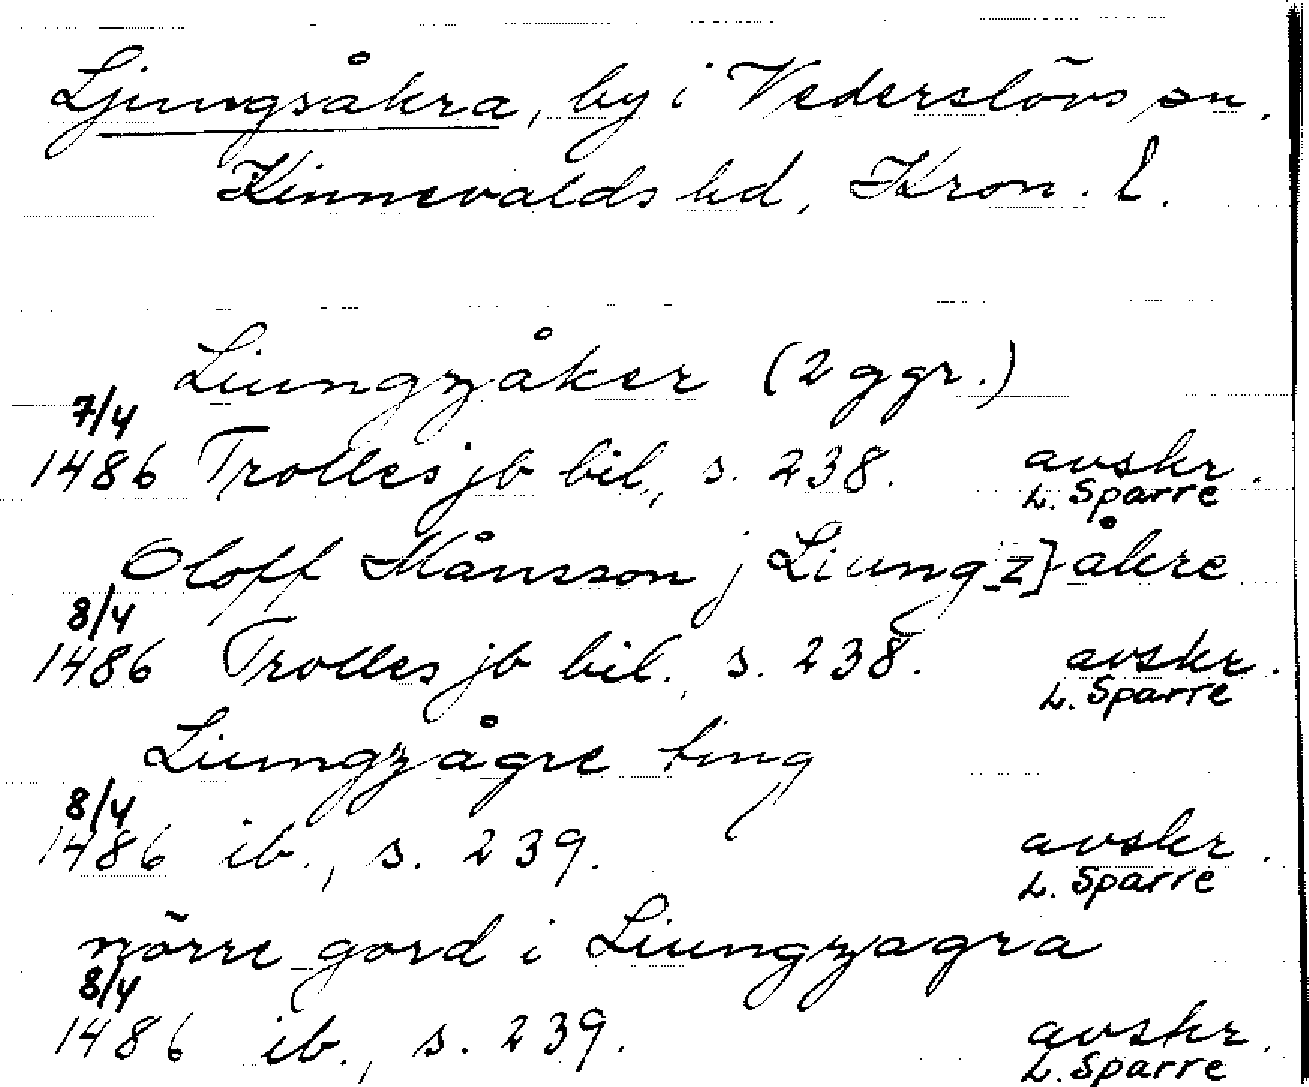 Ljungsåkra, by i Vederslövs sn.
Kinnevalds hd, Kron. l.
Liungzåker (2 ggr.)
7/4
1486 Trolles jb bil., s. 238. avskr.
L. Sparre
Oloff Månsson j Liung[z]åkre
8/4
1486 Trolles jb bil., s. 238. avskr.
L. Sparre
Liungzågre ting
8/4
1486 ib., s. 239. avskr.
L. Sparre
nörre gord i Liungzagra
8/4
1486 ib., s. 239. avskr.
L. Sparre